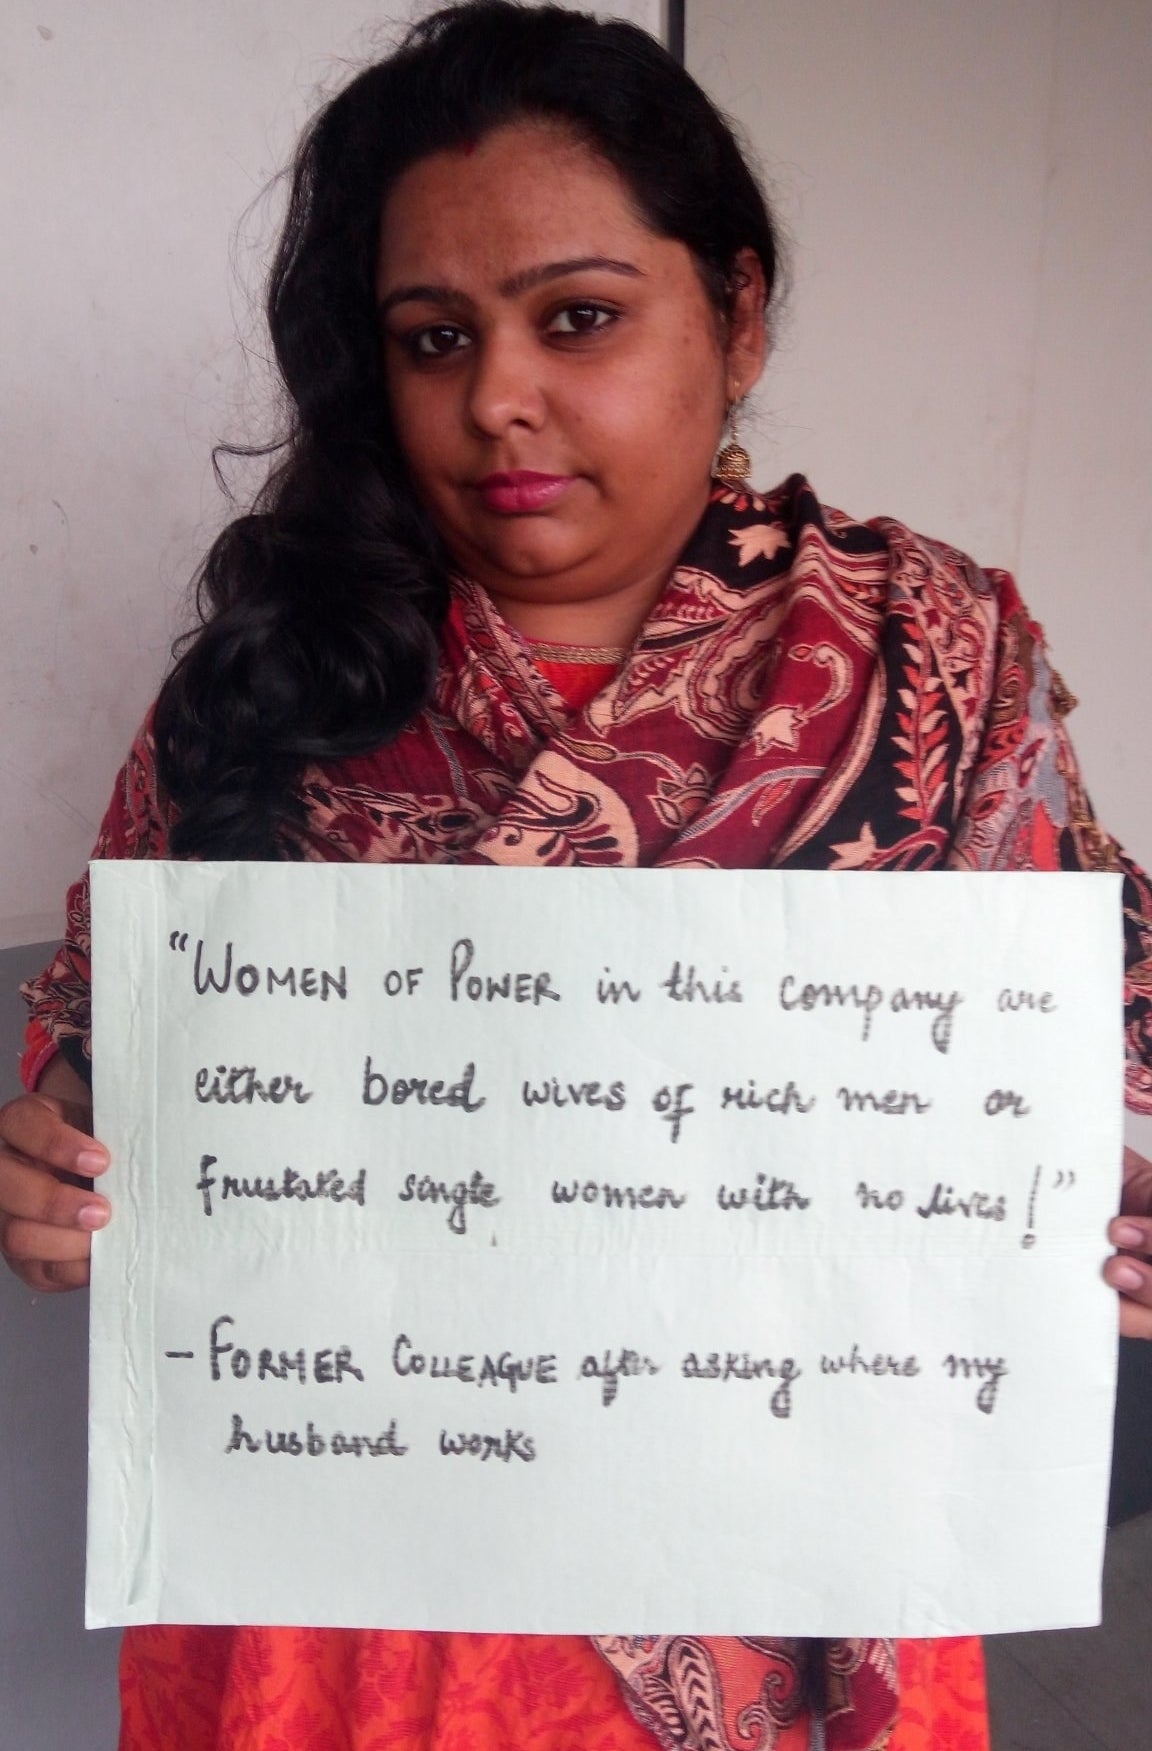 "WOMEN OF POWER in this company are
either bored wives of rich men or
frustated single women with no lives!"
- FORMER COLLEAGUE after asking where my
husband works